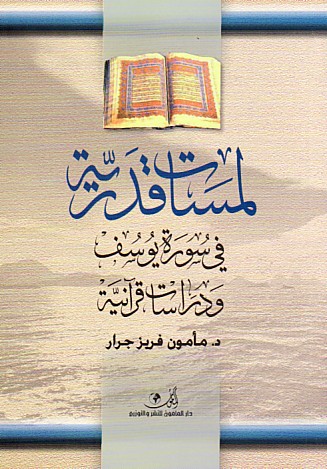 لمسات قدرية
في سورة يوسف
ودراسات قرآنية
د. مأمون فريز جرار
دار المأمون للنشر والتوزيع